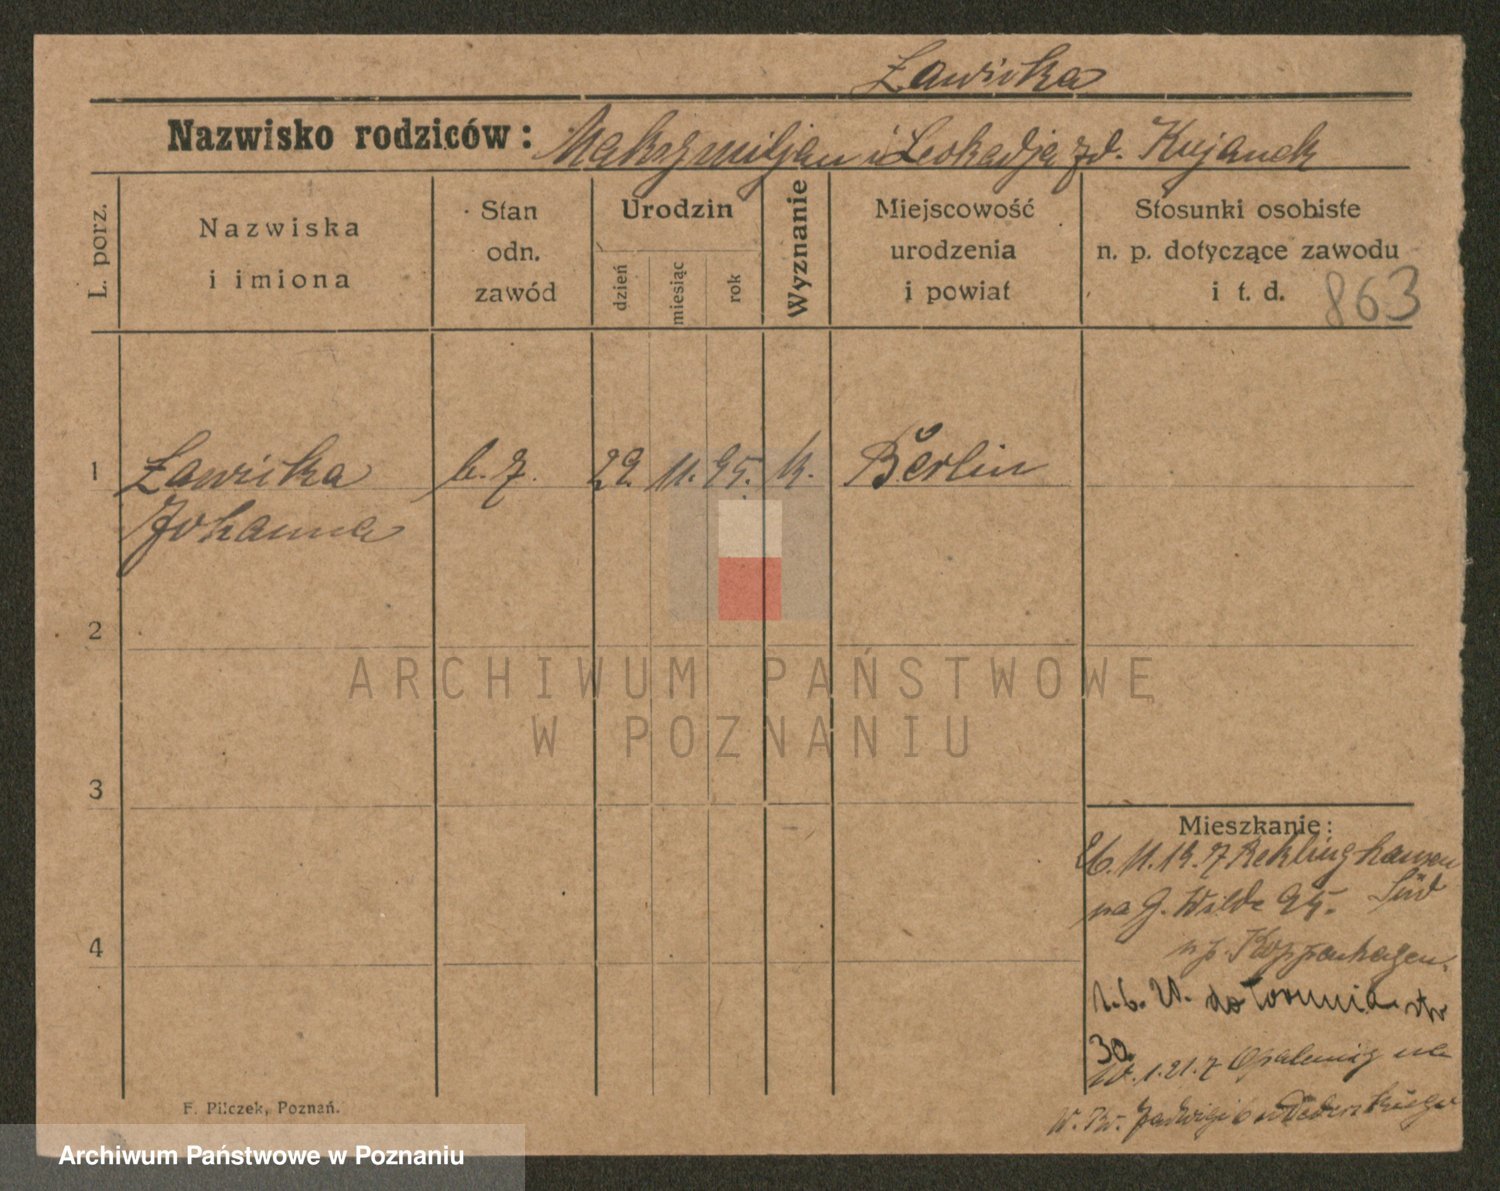 Ławicka
Nazwisko rodziców: Maksymiljan i Leokadja zd. Kujanek
L. porz.
Nazwiska
i imiona
Stan
odn.
zawód
Urodzin
dzień
miesiąc
rok
Wyznanie
Miejscowość
urodzenia
i powiat
Stosunki osobiste
n. p. dotyczące zawodu
i t. d.
863
1 Ławicka b. z. 22. 11. 95. k. Berlin
Johanna
2
3
4
ARCHIWUM PAŃSTWOWE
W POZNANIU
Mieszkanie:
26. 11. 19. z Reklinghausen
Süd
na G. Wilde 95.
n p. Koppenhagen.
1. 6. 21. do Torunia str
30.
1. 21. z Opalenicy na
W. Kr. Jadwigi 6
F. Pilczek, Poznań.
Archiwum Państwowe w Poznaniu